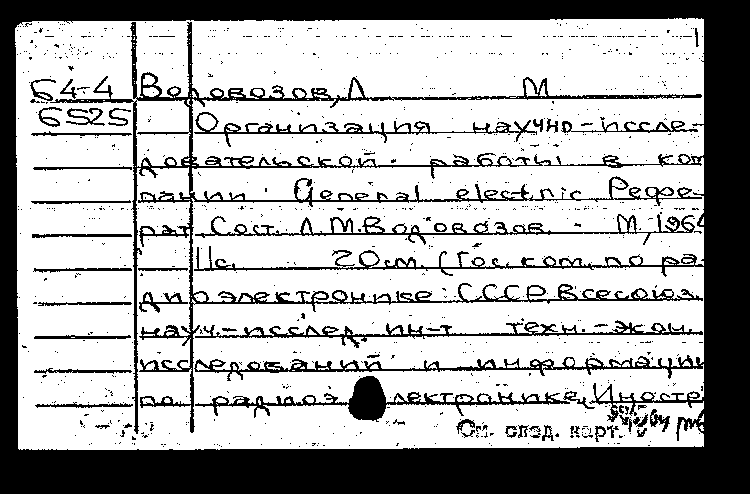 Б4-4 Водовозов, Л М
6525 Организация научно-иссле-
довательской работы в ком
пании General electric Рефе-
рат. Сост. Л.М.Водовозов. - М, 1964
11с. 20см. (Гос. ком. по ра-
диоэлектронике СССР. Всесоюз.
науч.-исслед. ин-т техн.-экон.
исследований и информации
по радиоэлектронике. Иностр
См. след. карт.